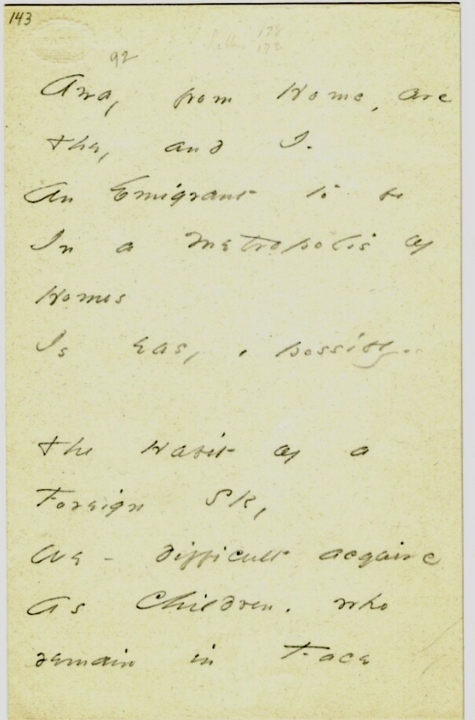 143
92
Away from Home, are
They and I.
An Emigrant to be
In a Metropolis of
Homes
Is easy, possibly -
The Habit of a
Foreign Sky
We - difficult acquire
As Children, who
remain in Face